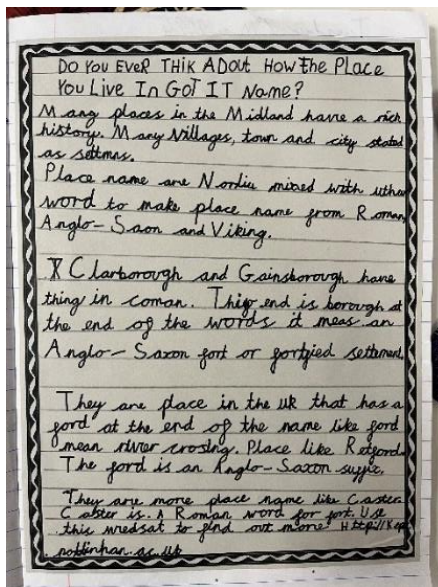 DO YOU EVER THIK ADOUT HOW THE PLACE
YOU LIVE IN GOT IT NAME?
Mang places in the Midland have a rich
history. Many Villages, town and city stated
as settmas.
Place name are Nordic mixed with uther
word to make place name from Roman,
Anglo-Saon and Viking.
Clarborough and Gainsborough have
thing in coman. Thier end is borough at
the end of the words it meas an
Anglo-Saxon fort or fortyied settement.
They are place in the uk that has a
ford at the end of the name like ford
mean river crosing. Place like Retford.
The ford is an Anglo-Saxon suffix.
They are more place name like Caster.
Caster is. A Roman word for fort. Use
this wredsat to find out more Http://Kep
nottinhan.ac.uk